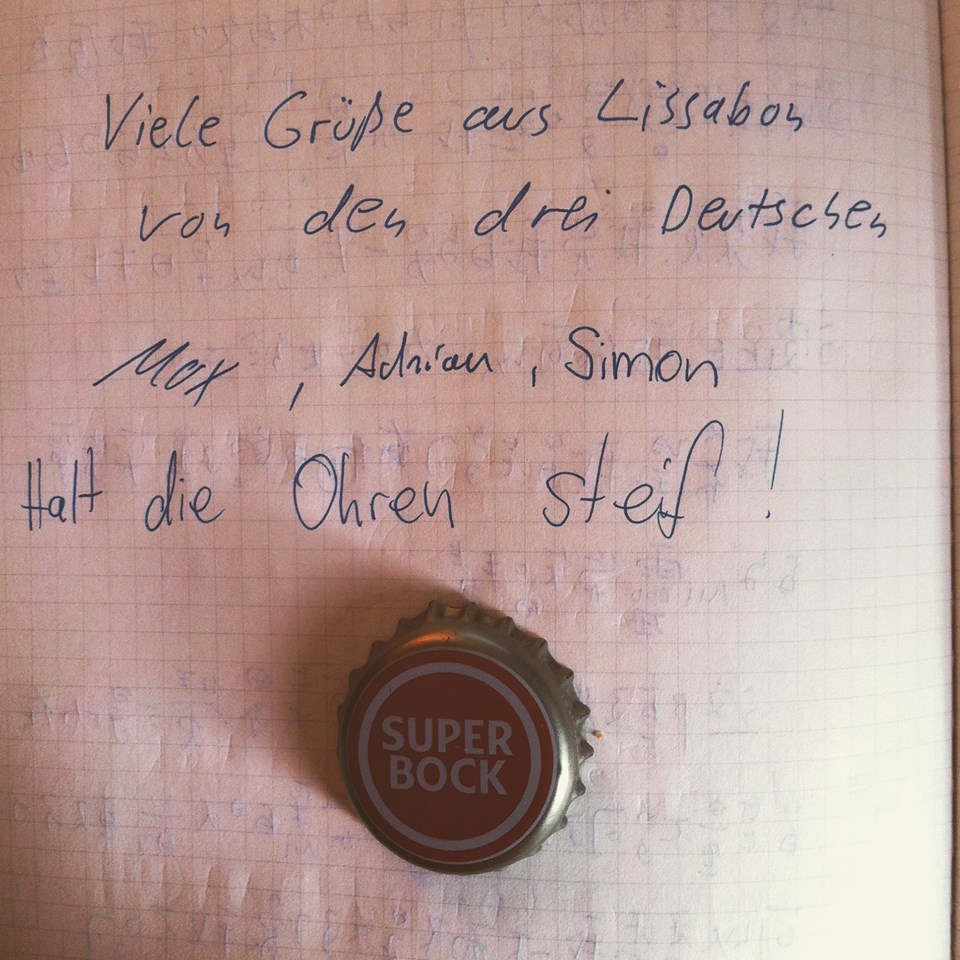 Viele Grüße aus Lissabon
von den drei Deutschen
Max, Adrian, Simon
Halt die Ohren steif!
SUPER
BOCK